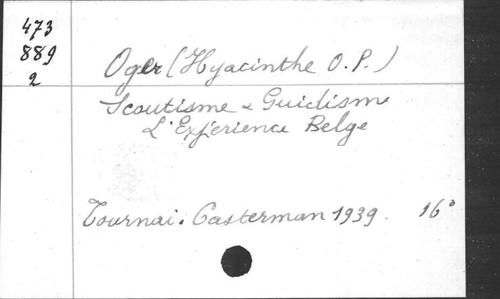 473
889
2
Oger (Hyacinthe O.P.)
Scoutisme & Guidisme
L'Expérience Belge
Tournai. Casterman 1939. 16°